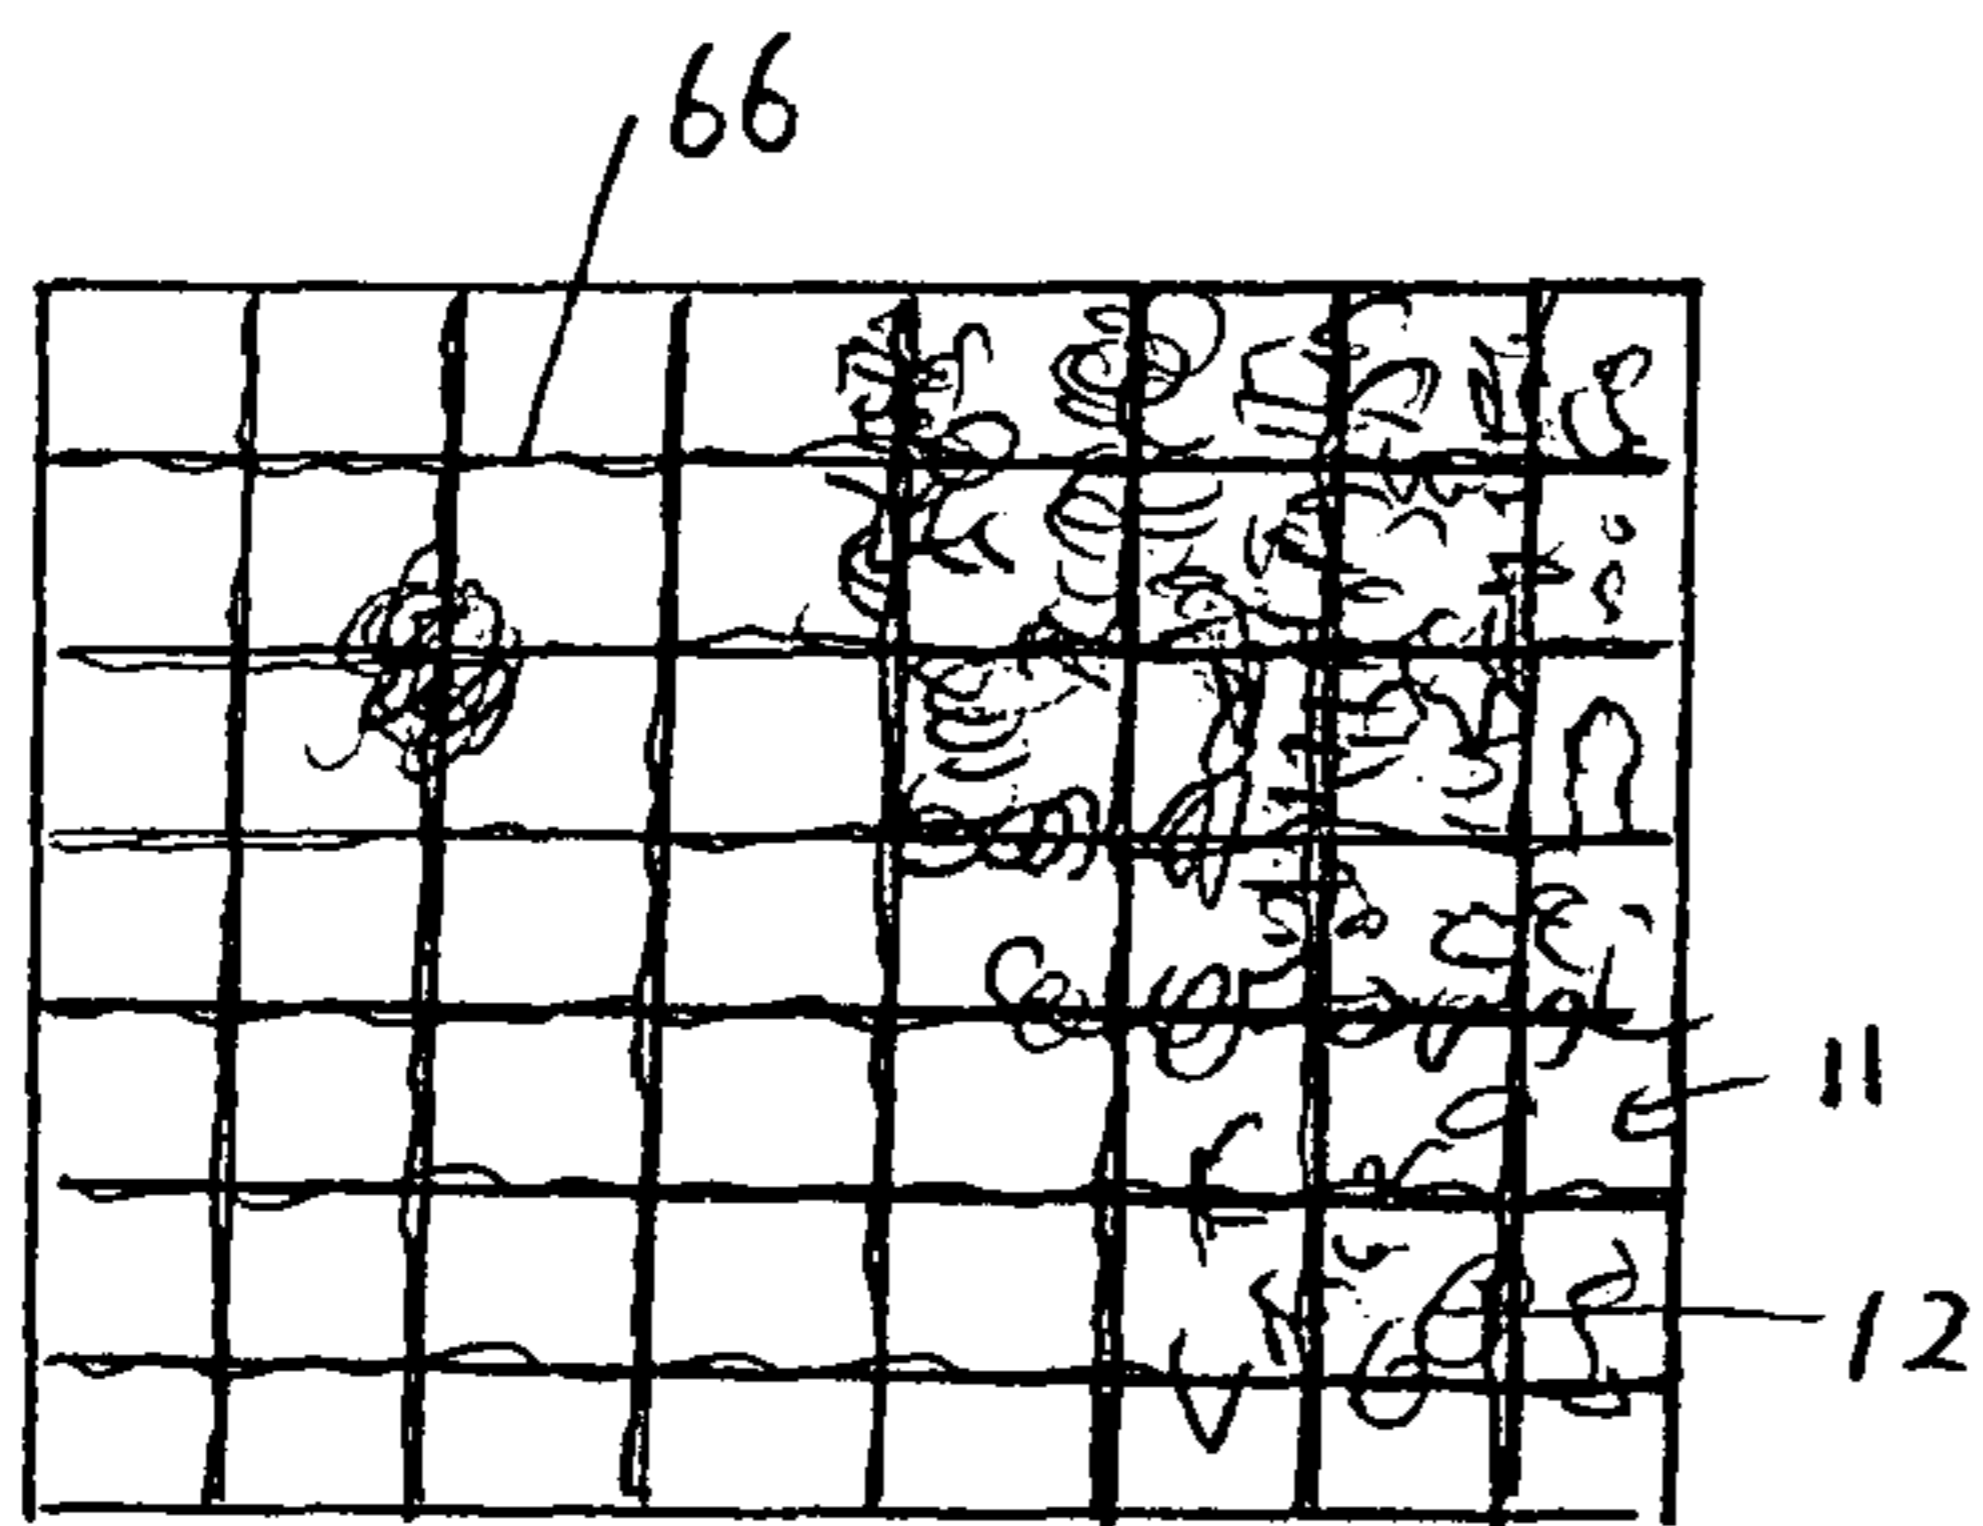 66
11
12